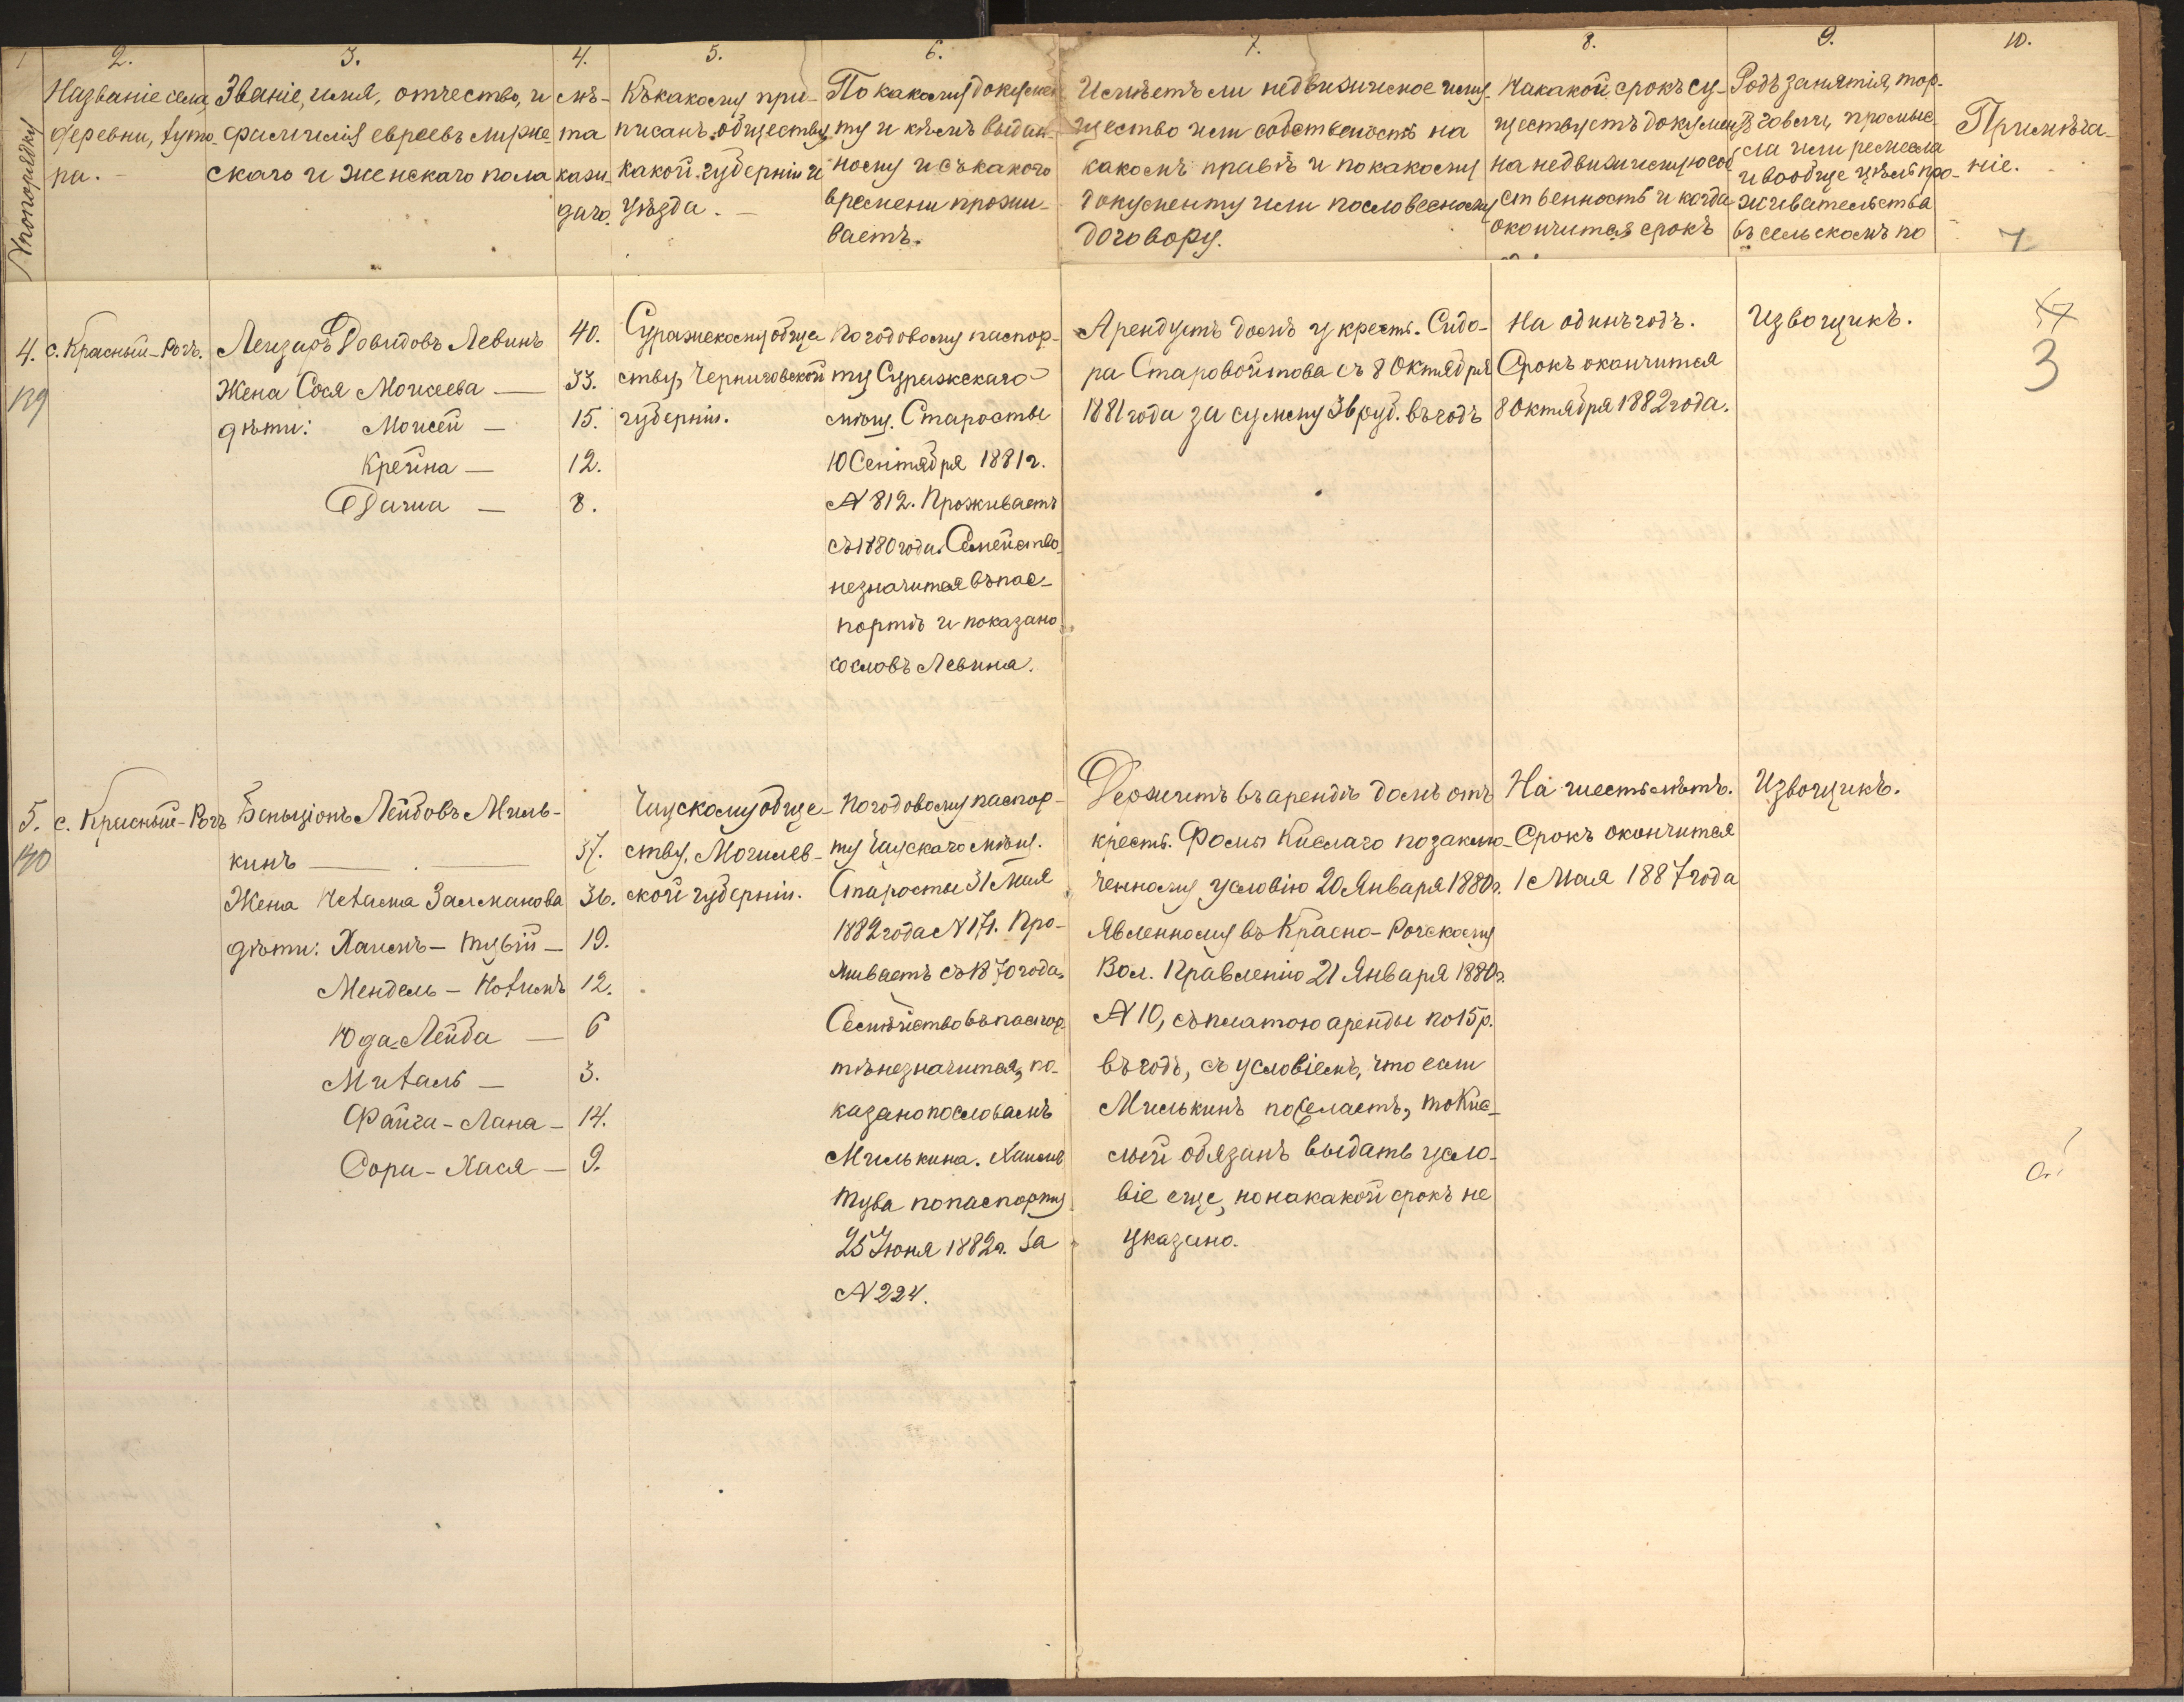 1
2.
3.
4.
5.
6.
7.
8.
9.
10.
№ по порядку
Названіе села,
деревни, хуто-
ра.
Званіе, имя, отчество, и
фамилія евреевъ мужс-
скаго и женскаго пола
лѣ-
та
каж-
даго.
Къ какому при-
писанъ обществу,
какой губерніи и
уѣзда.
По какому докумен
ту и кѣмъ выдан-
ному и съ какого
времени прожи-
ваетъ.
Имѣетъ ли недвижимое иму-
щество или собственость на
какомъ правѣ и по какому
документу или по словесному
договору.
На какой срокъ су-
ществуетъ докумен
на недвижимую соб
ственность и когда
окончится срокъ
Родъ занятія, тор-
говли, промыс-
ла или ремесла
и вообще цѣль про-
живательства
въ сельскомъ по
Примѣча-
ніе.
7
4.
139
с. Красный-Рогъ.
Лейзаръ Довидовъ Левинъ
Жена Сося Моисеева —
дѣти: Моисей —
Крейна —
Двина —
40.
33.
15.
12.
8.
Суражскому обще
ству, Черниговской
губерніи.
По годовому паспор-
ту Суражскаго
мѣщ. Старосты
10 Сентября 1881 г.
№ 812. Проживаетъ
съ 1880 года. Семейство
не значится въ пас-
портѣ и показано
со словъ Левина.
Арендуетъ домъ у крест. Сидо-
ра Старовойтова съ 8 Октября
1881 года за сумму 36 руб. въ годъ
На одинъ годъ.
Срокъ окончится
8 Октября 1882 года.
Извощикъ.
3
5.
140
с. Красный-Рогъ
Беньціонъ Лейбовъ Миль-
кинъ —
Жена Нехама Залманова
дѣти: Хаимъ - Тувій —
Мендель - Нохимъ
Юда-Лейба —
Михаль —
Файга - Лана —
Сора - Хася —
37.
36.
19.
12.
6
3.
14.
9.
Чаускому обще-
ству, Могилев-
ской губерніи.
По годовому паспор-
ту Чаускаго мѣщ.
Старосты 31 Мая
1882 года № 171. Про-
живаетъ съ 1870 года,
Семѣйство въ паспор-
тѣ не значится, по-
казано по словамъ
Милькина. Хаимъ
Тува по паспорту
25 Іюня 1882 г. за
№ 224.
Держитъ въ арендѣ домъ отъ
крест. Фомы Кислаго по заклю-
ченному условію 20 Января 1880 г.
явленному въ Красно-Рогскому
Вол. Правленію 21 Января 1880 г.
№ 10, съ платою аренды по 15 р.
въ годъ, съ условіемъ, что если
Милькинъ пожелаетъ, то Кис-
лый обязанъ выдать усло-
віе еще, но на какой срокъ не
указано.
На шесть лѣтъ.
Срокъ окончится
1 Мая 1887 года
Извощикъ.